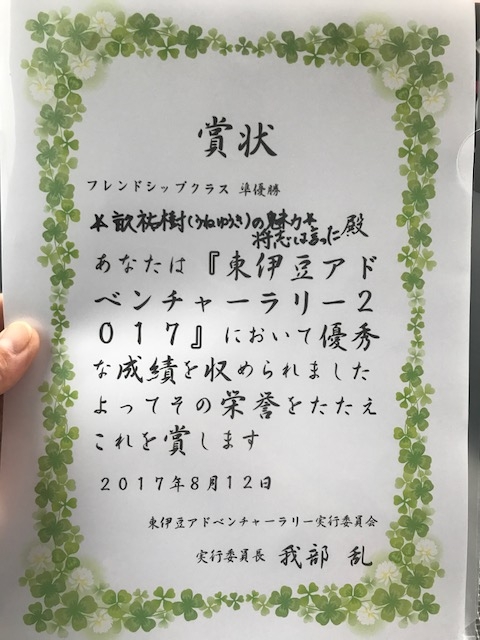 賞状
フレンドシップクラス 準優勝
☆畝祐樹(うねゆうき)の魅力☆
将志は言った 殿
あなたは『東伊豆アド
ベンチャーラリー2
017』において優秀
な成績を収められました
よってその栄誉をたたえ
これを賞します
2017年8月12日
東伊豆アドベンチャーラリー実行委員会
実行委員長 我部 乱